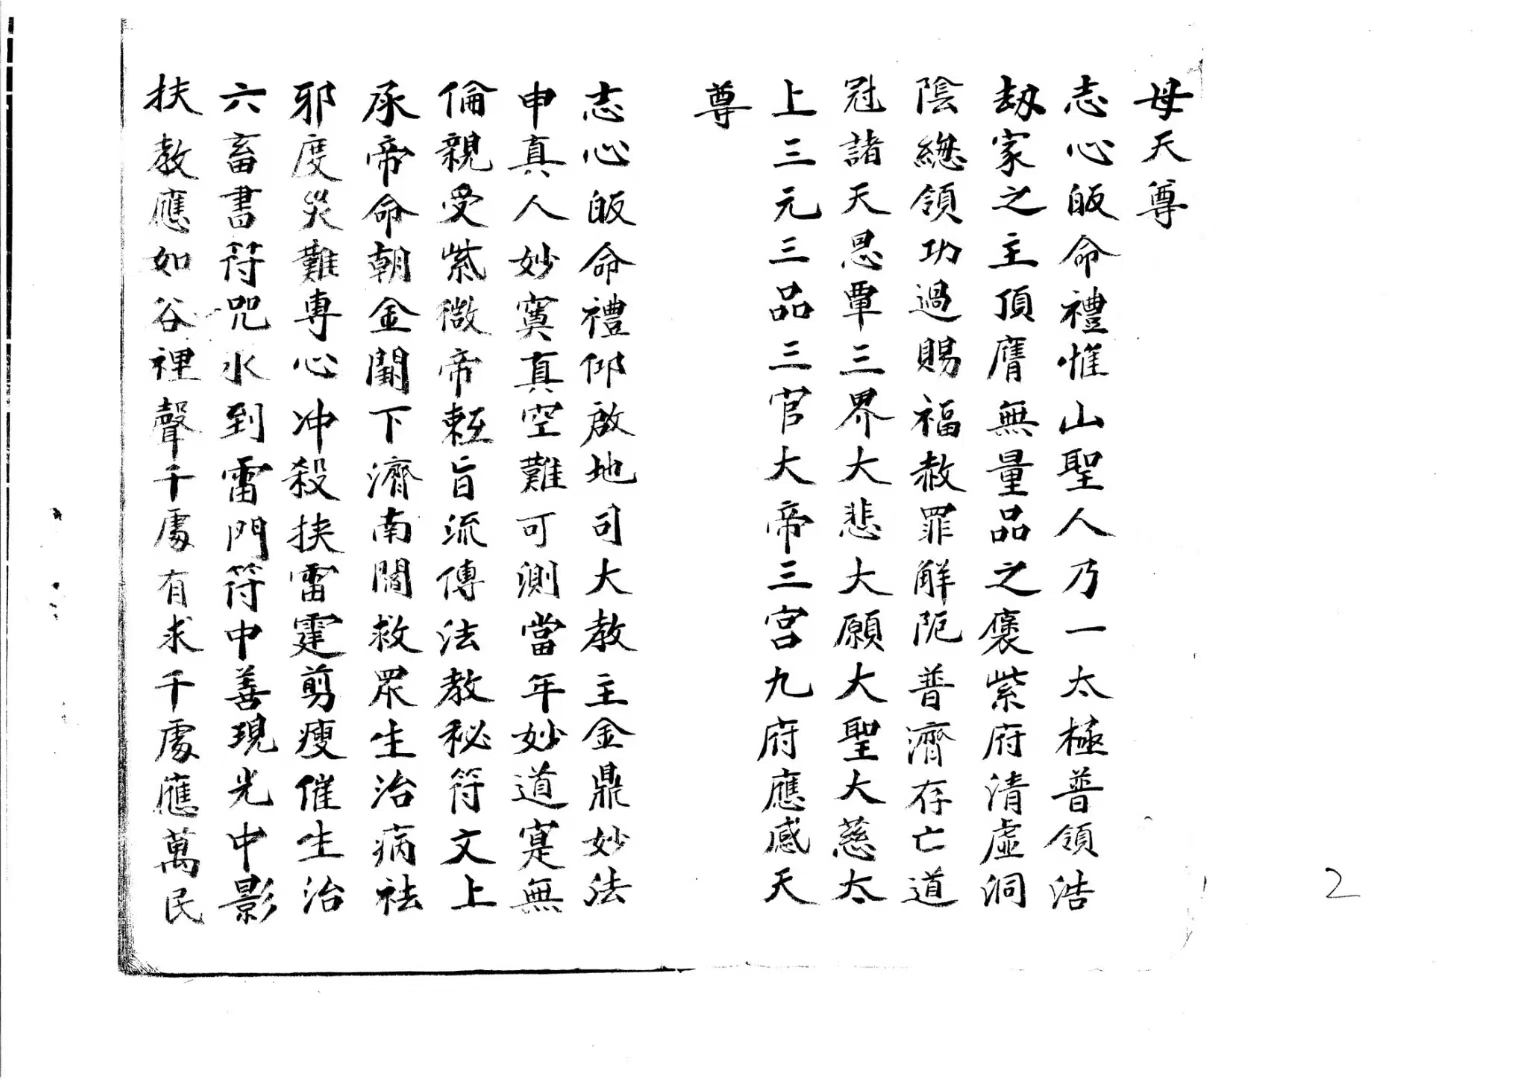 母天尊
志心皈命禮惟山聖人乃一太極普領浩
劫家之主頂膺無量品之褒紫府清虛洞
陰總領功過賜福赦罪解阨普濟存亡道
冠諸天恩覃三界大悲大願大聖大慈太
上三元三品三官大帝三宮九府應感天
尊
志心皈命禮仰啟地司大教主金鼎妙法
申真人妙寞真空難可測當年妙道寔無
倫親受紫微帝敕旨流傳法教秘符文上
承帝命朝金闕下濟南閻救眾生治病祛
邪度災難專心冲殺挟雷霆剪瘦催生治
六畜書符咒水到雷門符中善現光中影
扶教應如谷裡聲千處有求千處應萬民
2